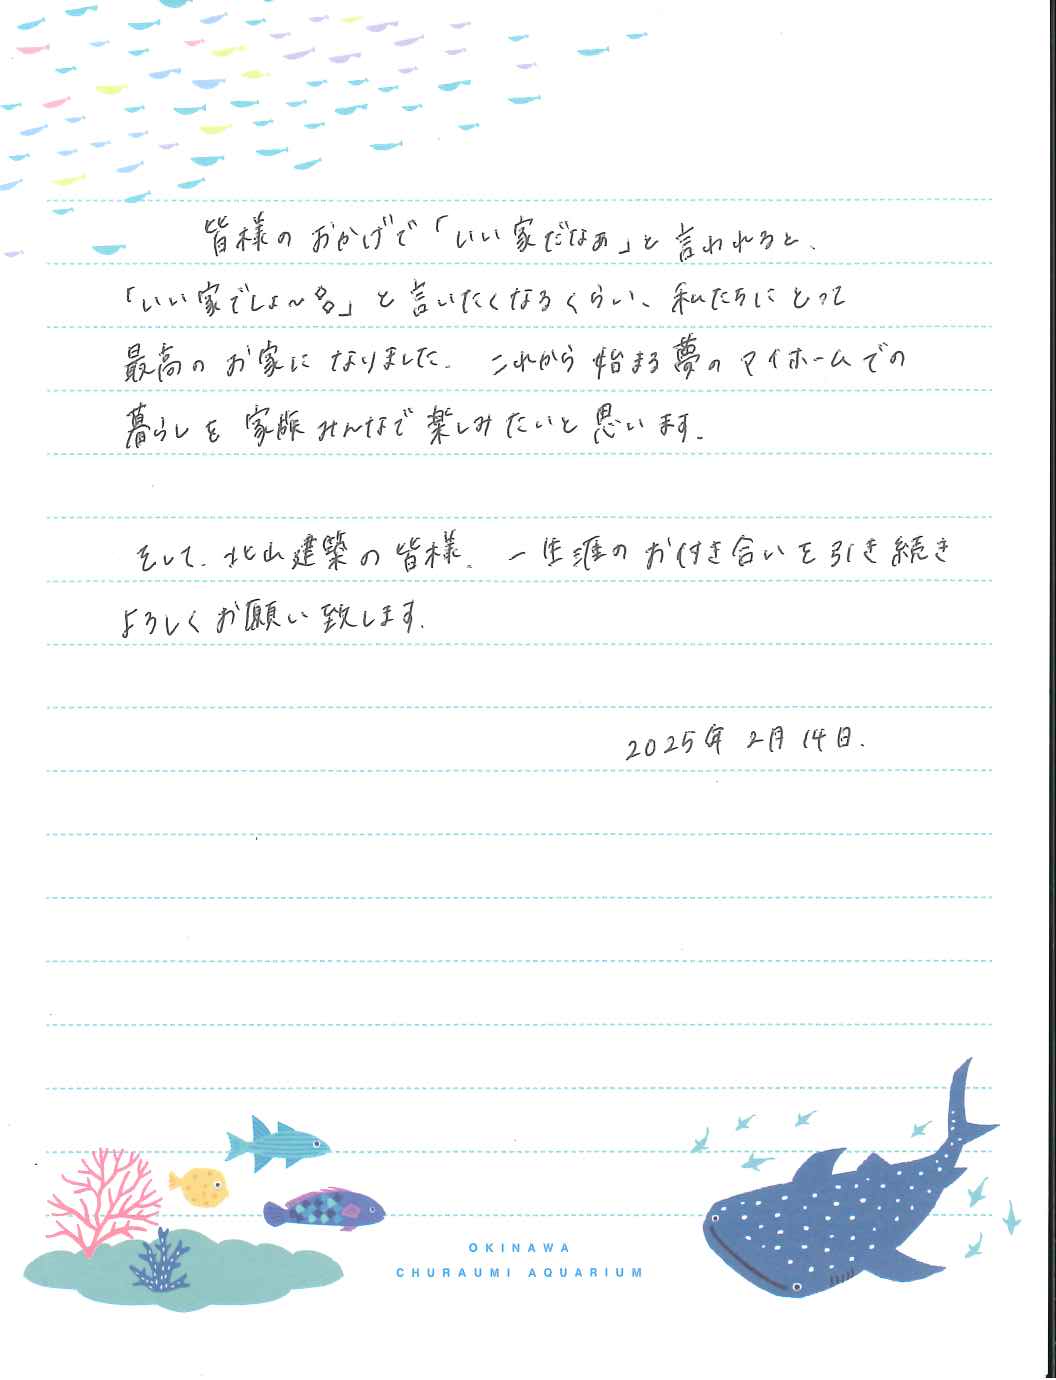 皆様のおかげで「いい家だなぁ」と言われると、
「いい家でしょ〜!!」と言いたくなるくらい、私たちにとって
最高のお家になりました。これから始まる夢のマイホームでの
暮らしを家族みんなで楽しみたいと思います。
そして、北山建築の皆様。一生涯のお付き合いを引き続き
よろしくお願い致します。
2025年2月14日.
OKINAWA
CHURAUMI AQUARIUM